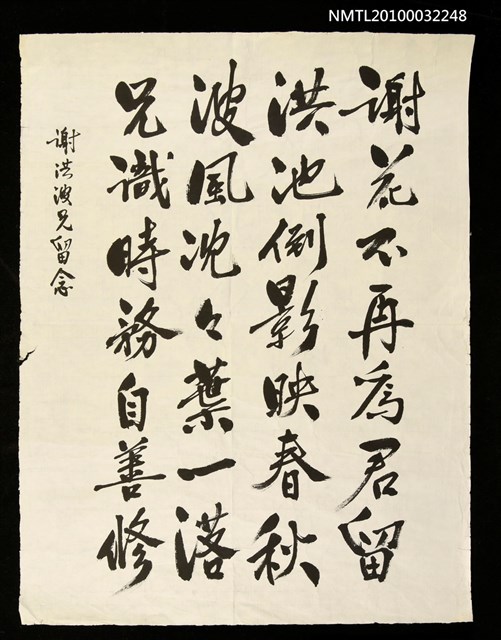 NMTL20100032248
謝花不再為君留
洪池倒影映春秋
波風沈々葉一落
兄識時務自善修
謝洪波兄留念